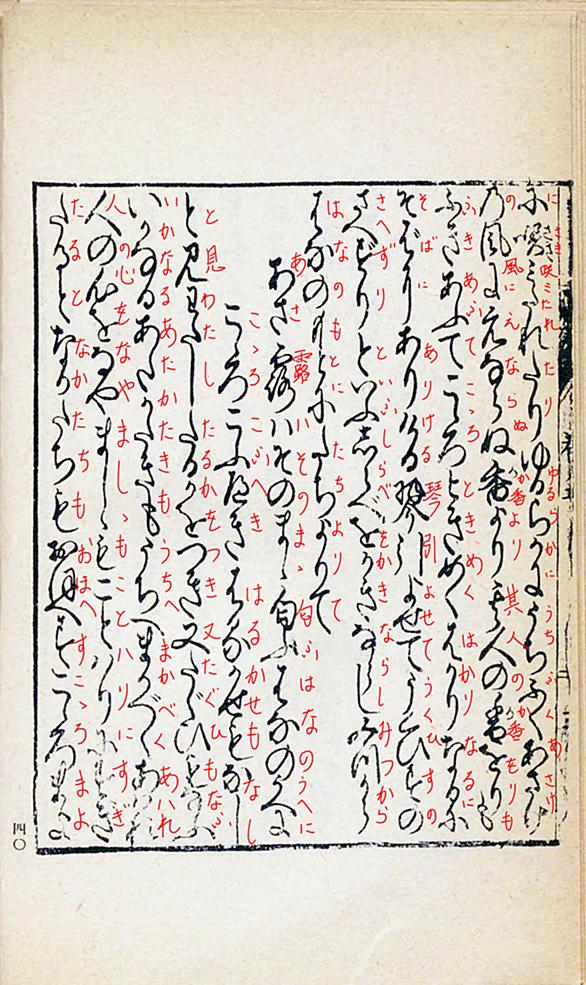 に咲ミたれたりゆるらかにうちふくあさけ
の風にえならぬ香より其人の香をりも
ふきあふてこゝろときめくはかりなるに
そばにありける琴引よせてうくひすの
さへずりといふしらべをかきならしみつから
はなのもとにたちよりて
あさ露ハそのまゝ匂ふはなのうへに
こゝろこふへきはるかせもなし
と見わたしたるかをつき又たぐひもなふ
いかなるあたかたきもうちへまかべくあハれ
人の心をなやましゝもことハりにすぎ
たるとなかたちもおほへすこゝろまよ
四〇